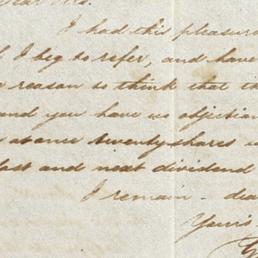 Dear Mr.
I had this pleasure
I beg to refer, and have
reason to think that th
and you have no objection
at once twenty shares
last and next dividend
I remain - dea
Yours